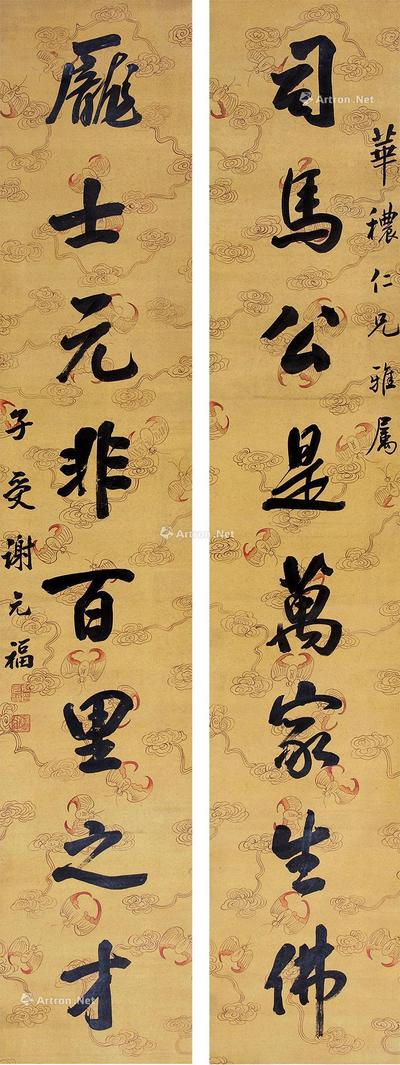 華穠仁兄雅屬
司馬公是萬家生佛
龐士元非百里之才
子受謝元福
Artron.Net
Artron.Net
Artron.Net